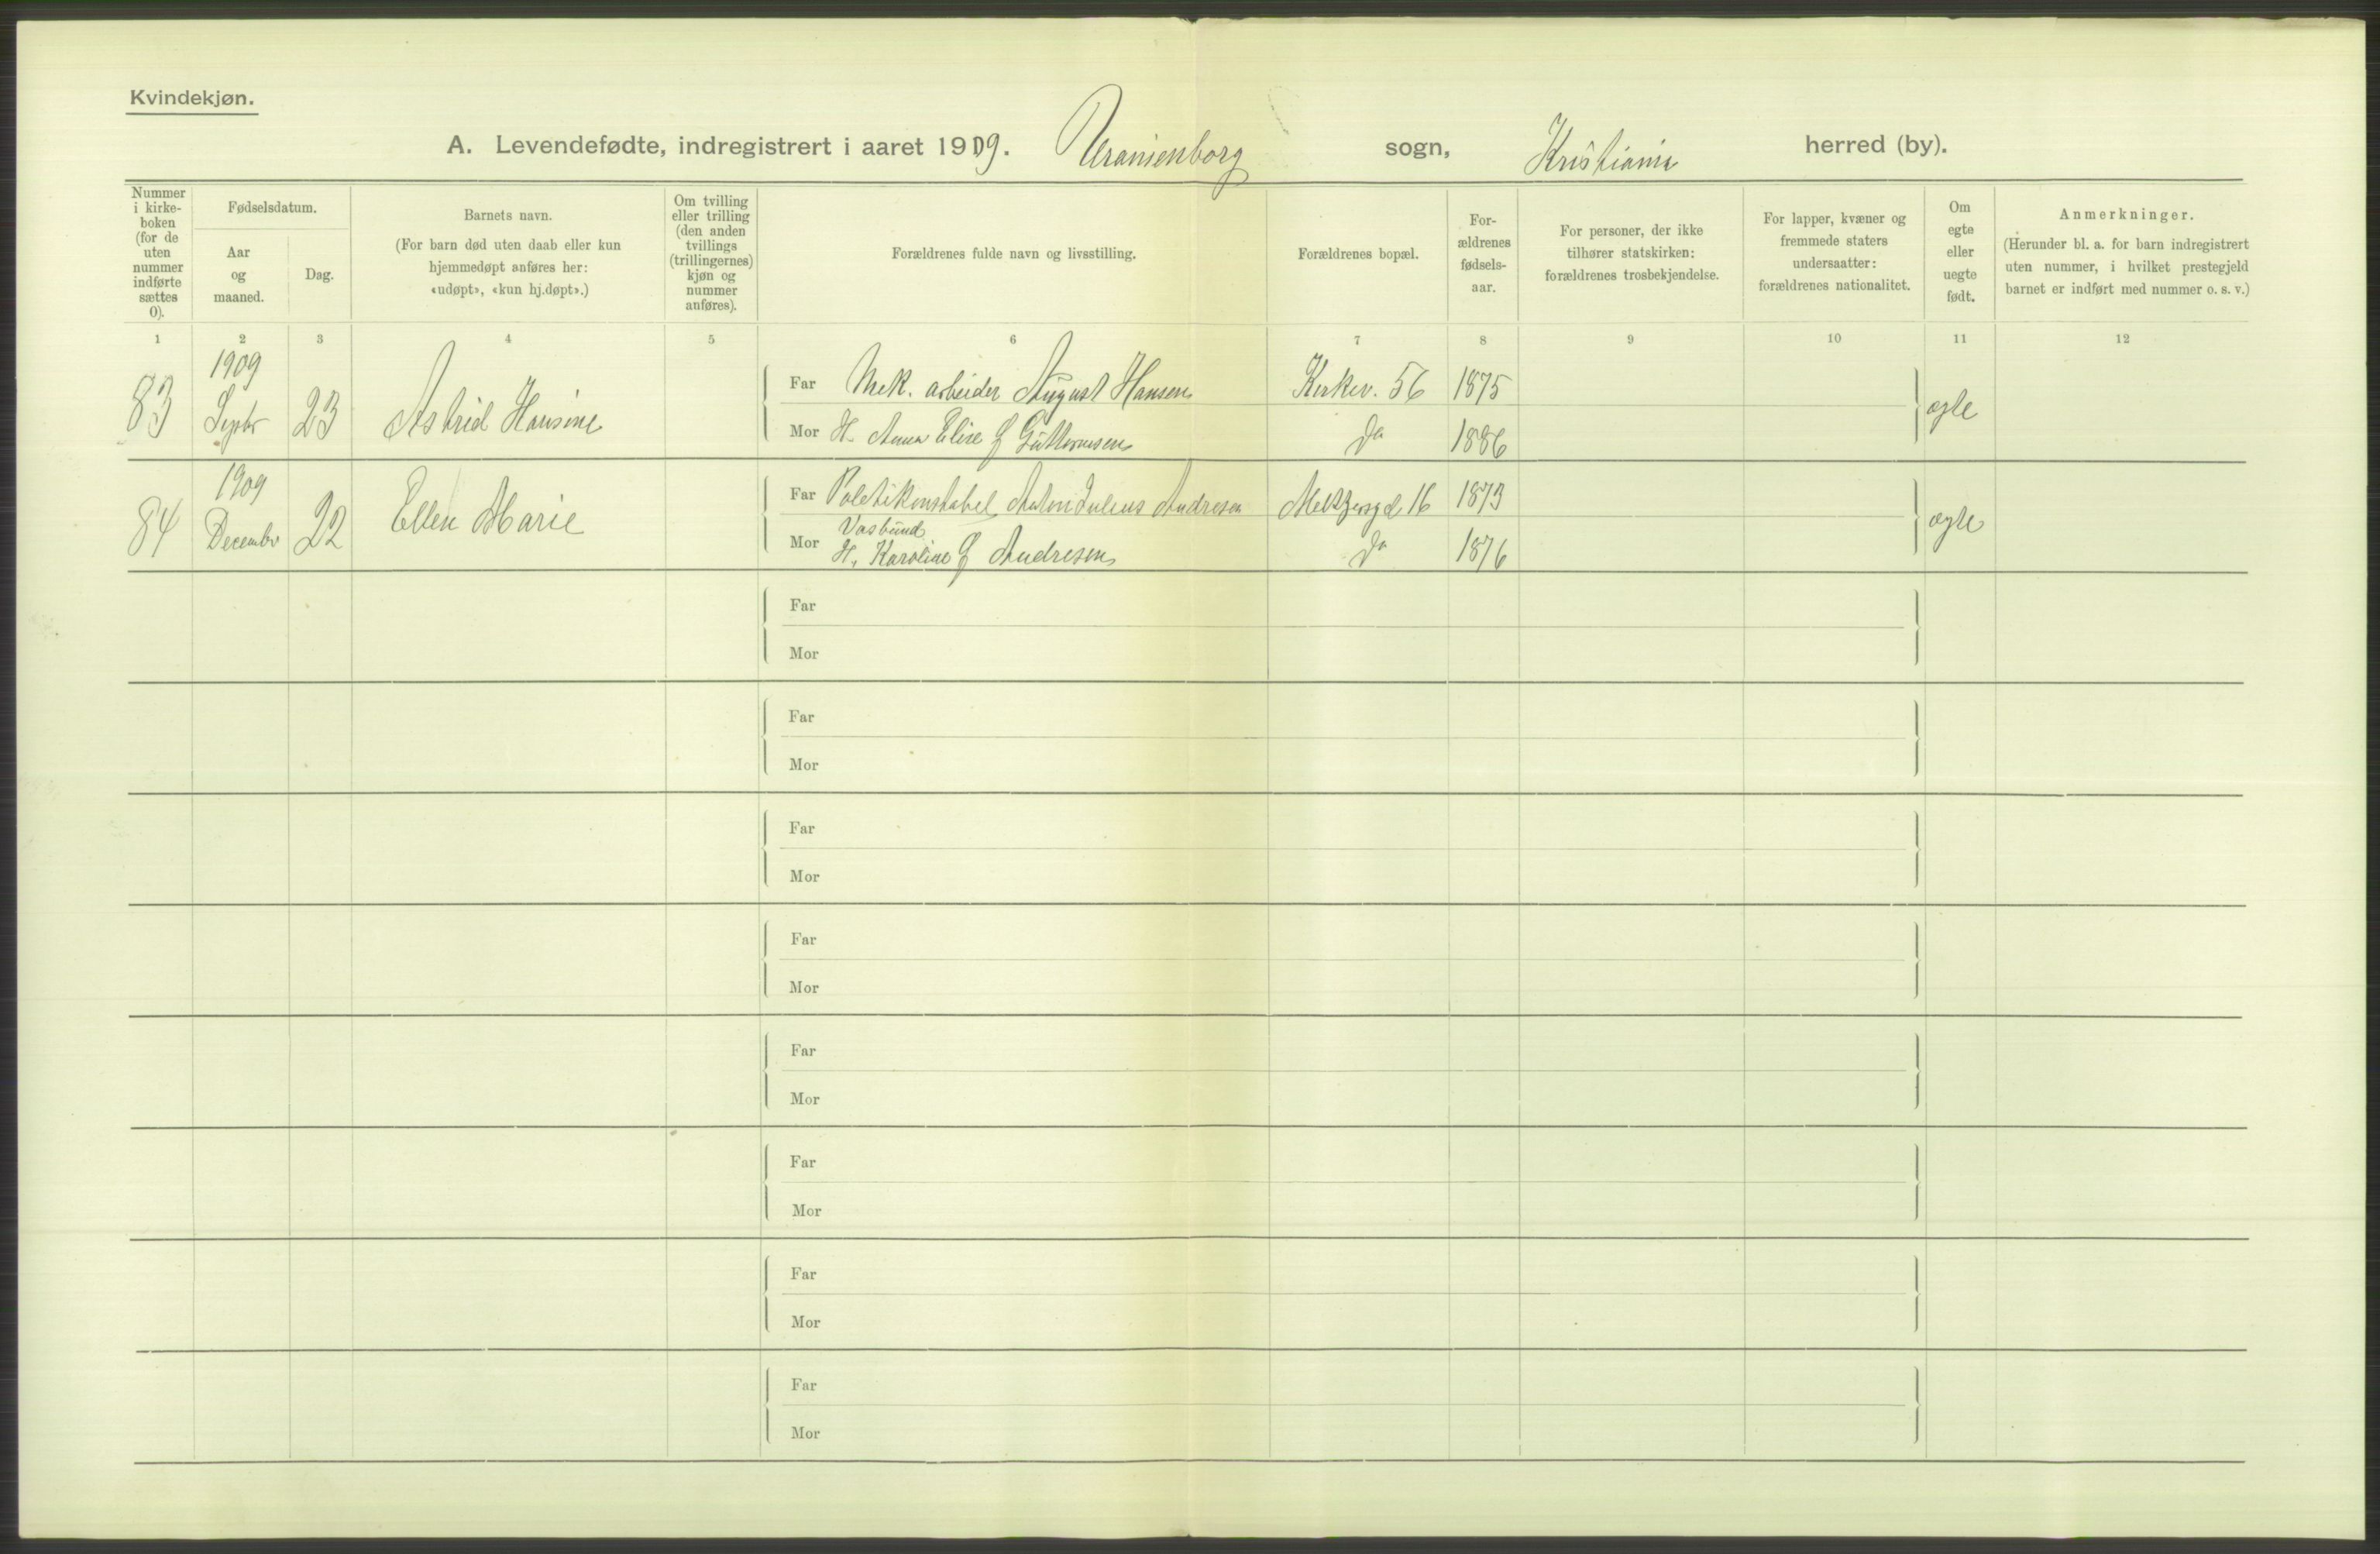 Kvindekjøn.
A. Levendefødte, indregistrert i aaret 1909. Uranienborg sogn, Kristiania herred (by).
Nummer i kirke-boken (for de uten nummer indførte sættes 0).
Fødselsdatum.
Aar og maaned.
Dag.
Barnets navn.
(For barn død uten daab eller kun hjemmedøpt anføres her: «udøpt», «kun hj.døpt».)
Om tvilling eller trilling (den anden tvillings (trillingernes) kjøn og nummer anføres).
Forældrenes fulde navn og livsstilling.
Forældrenes bopæl.
For-ældrenes fødsels-aar.
For personer, der ikke tilhører statskirken: forældrenes trosbekjendelse.
For lapper, kvæner og fremmede staters undersaatter: forældrenes nationalitet.
Om egte eller uegte født.
Anmerkninger.
(Herunder bl. a. for barn indregistrert uten nummer, i hvilket prestegjeld barnet er indført med nummer o. s. v.)
1 2 3 4 5 6 7 8 9 10 11 12
83 1909 Septbr 23 Astrid Hansine Far Mek. arbeider August Hansen Kirkev. 56 1875 ægte
Mor H. Anna Elise f Guttormsen do 1886
84 1909 Decembr 22 Ellen Marie Far Politikonstabel Anton Julius Andresen Meltzersgd 16 1873 ægte
Mor H. Karoline f Andresen do 1876
Far
Mor
Far
Mor
Far
Mor
Far
Mor
Far
Mor
Far
Mor
Far
Mor
Far
Mor